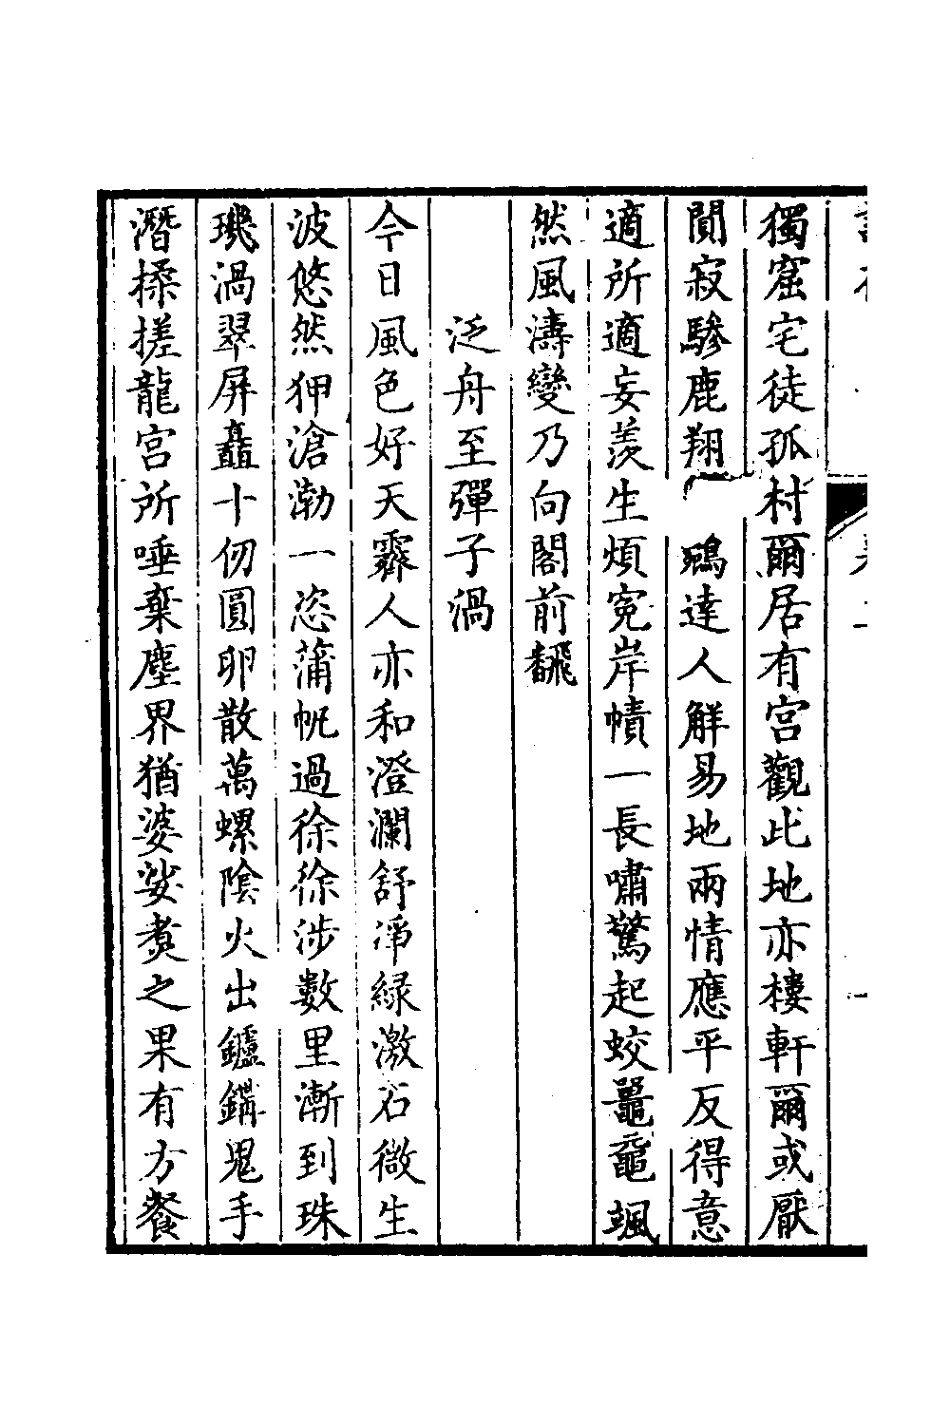 獨窟宅徒孤村爾居有宮觀此地亦樓軒爾或厭
閴寂驂鹿翔鵷達人觧易地兩情應平反得意
適所適妄羨生煩寃岸幘一長嘯驚起蛟鼉黿颯
然風濤變乃向閣前飜
泛舟至彈子渦
今日風色好天霽人亦和澄瀾舒淨緑激石微生
波悠然狎滄渤一恣蒲帆過徐徐涉數里漸到珠
璣渦翠屏矗十仞圓卵散萬螺陰火出鑪鞲鬼手
潛搡搓龍宮所唾棄塵界猶婆娑煑之果有方餐